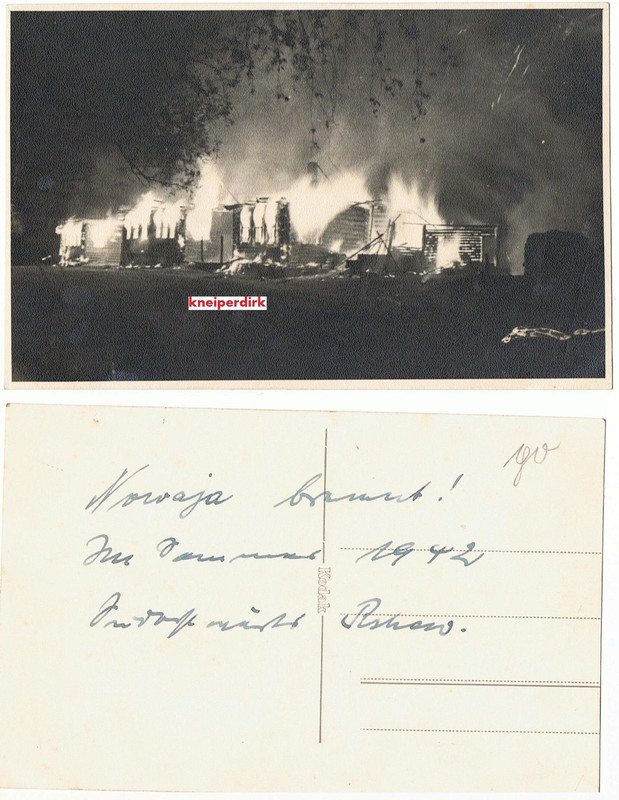 kneiperdirk
Nowaja brennt!
Im Sommer 1942
Südostwärts Rshew.
Kodak